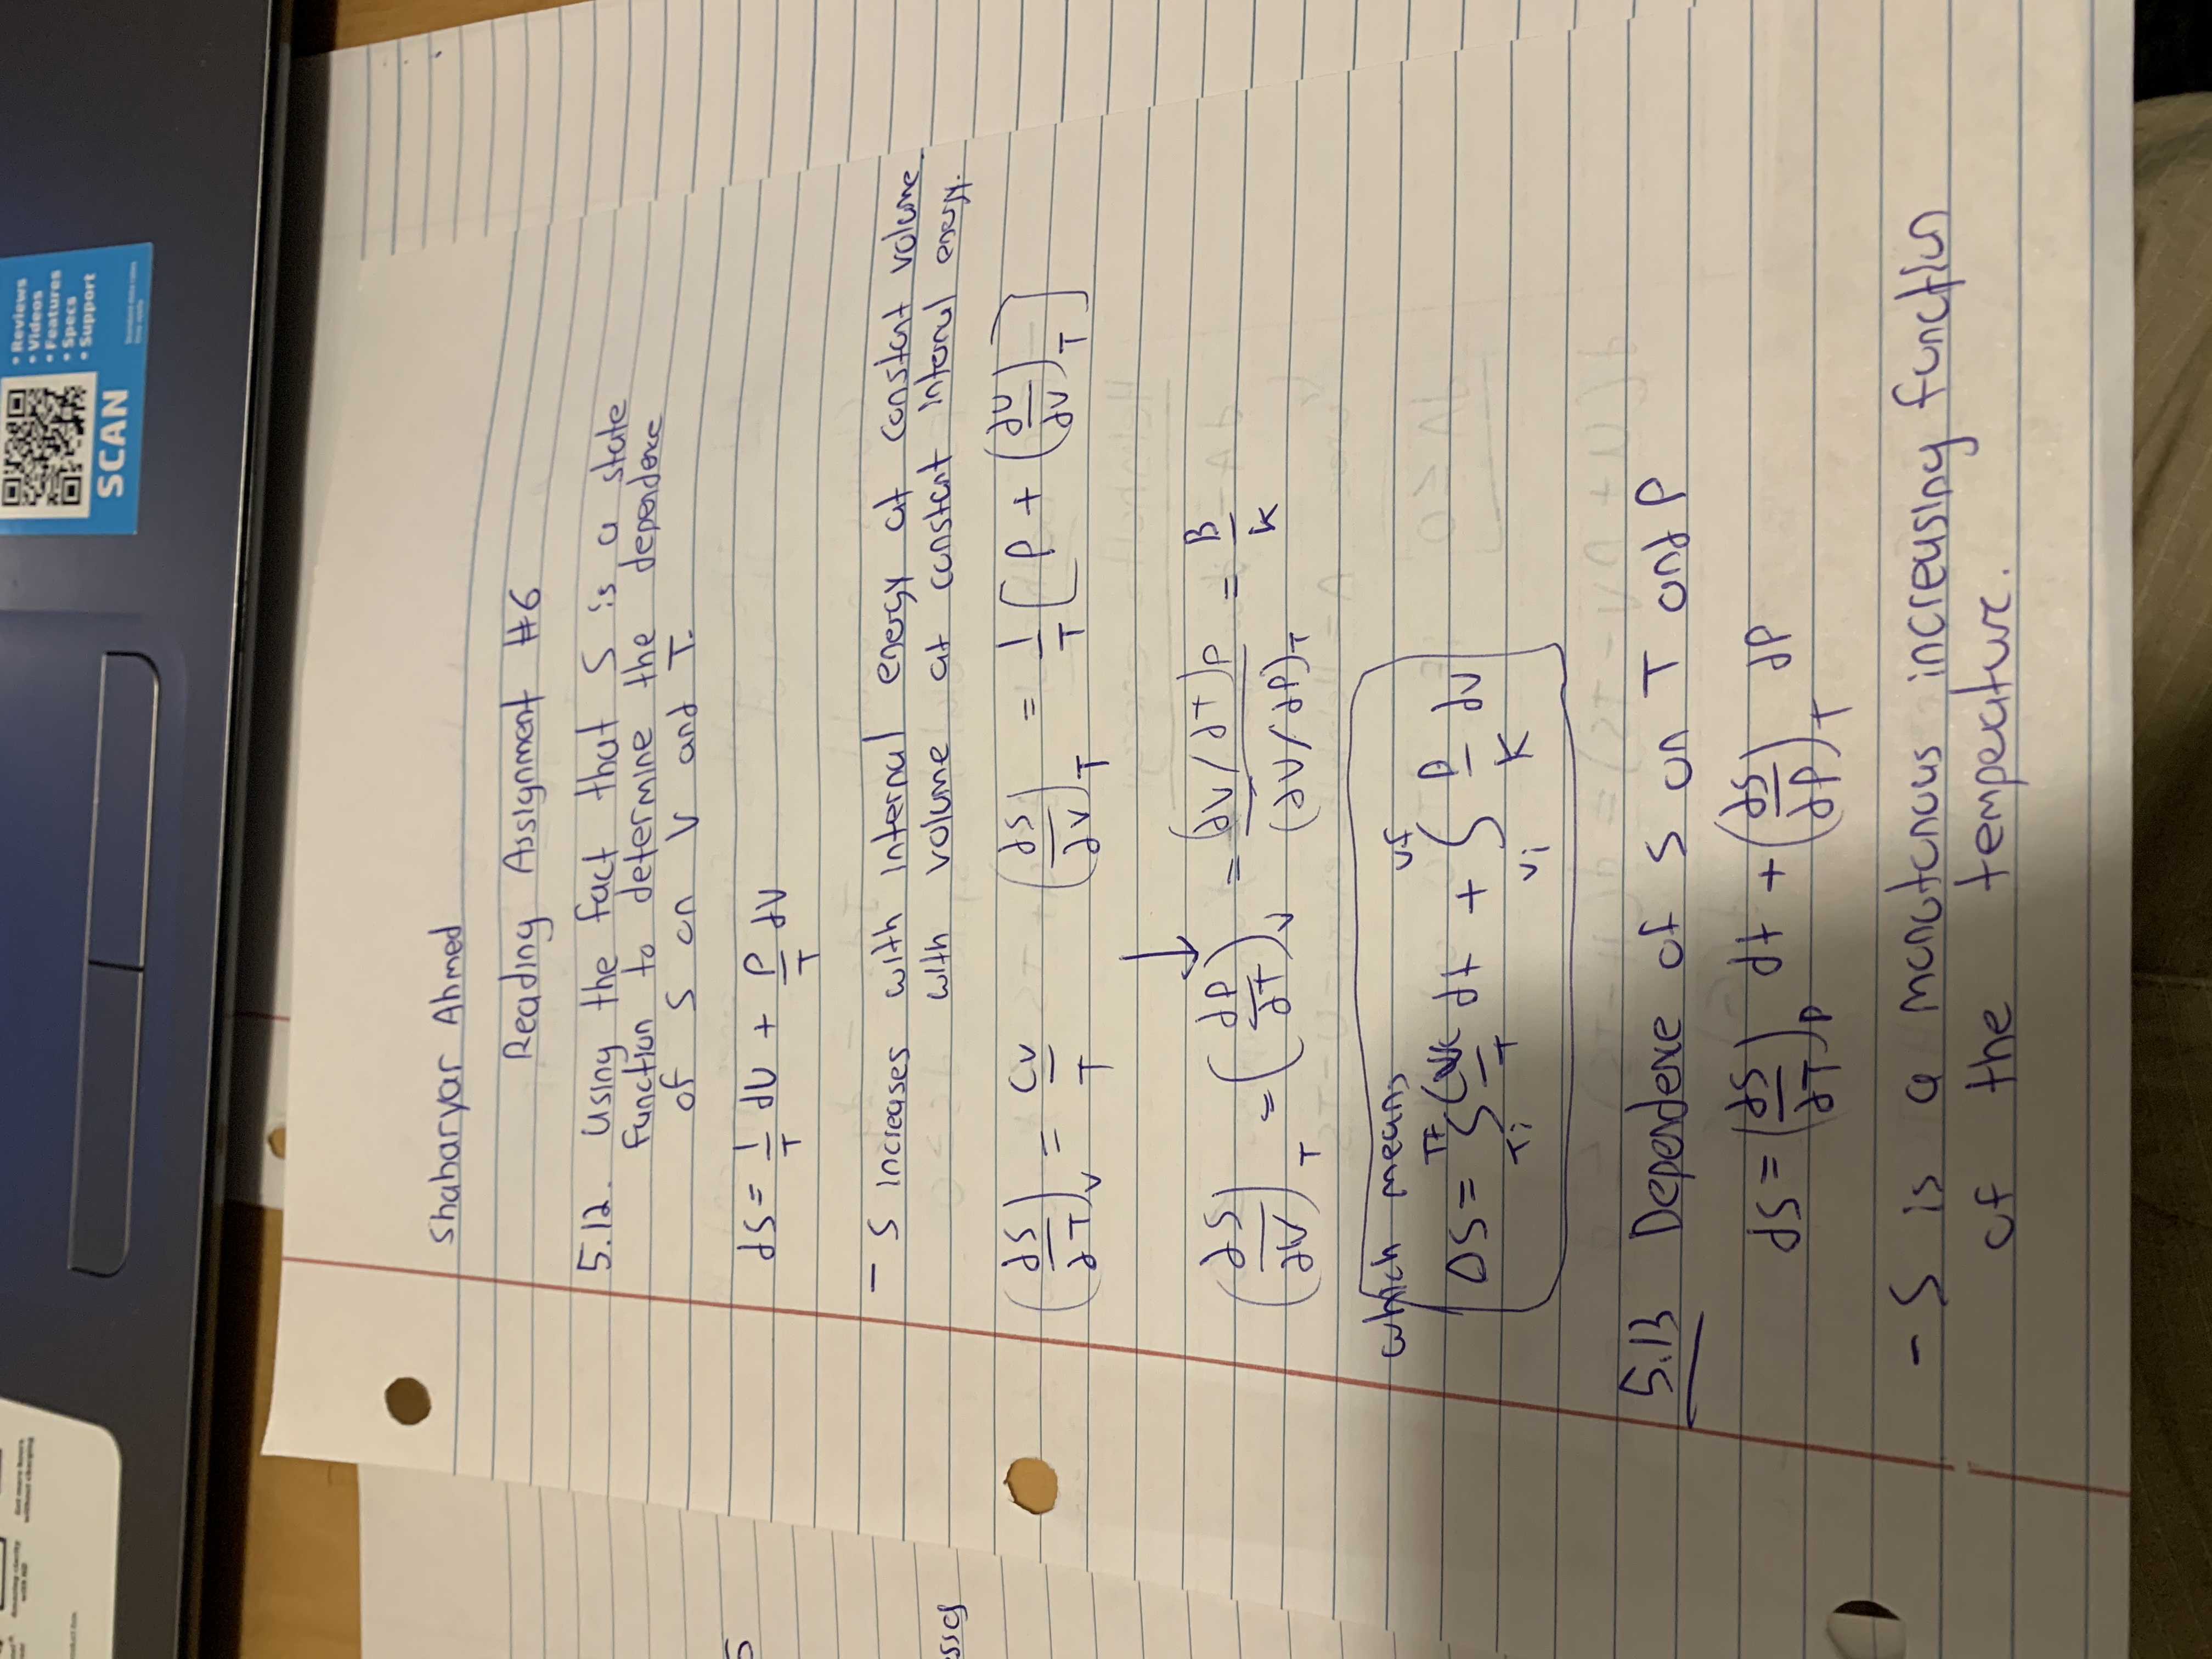 Amazing clarity
with HD
Get more hours
without charging
• Reviews
• Videos
• Features
• Specs
• Support
SCAN
Standard data rates
may apply
Shaharyar Ahmed
Reading Assignment #6
5.12. Using the fact that S is a state
function to determine the dependence
of S on V and T.
dS = 1/T dU + P/T dV
- S increases with internal energy at constant volume.
with volume at constant internal energy.
(∂S/∂T)V = CV/T (∂S/∂V)T = 1/T [P + (∂U/∂V)T]
↓
(∂S/∂V)T = (∂P/∂T)V = (∂V/∂T)P/(∂V/∂P)T = B/k
which means
ΔS = ∫Ti^Tf Cv/T dt + ∫Vi^Vf B/K dV
5.13 Dependence of S on T and P
dS = (∂S/∂T)P dt + (∂S/∂P)T dP
- S is a monotonous increasing function
of the temperature.